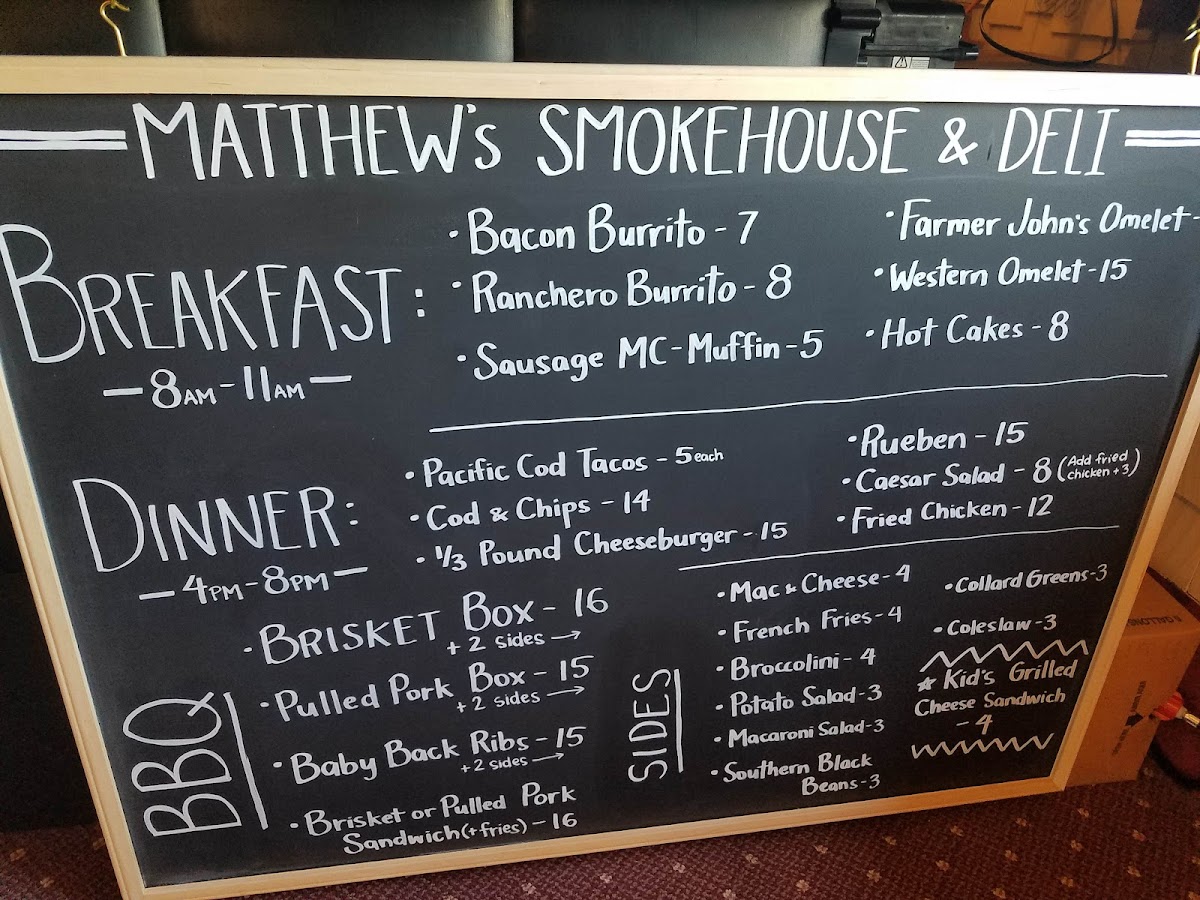 MATTHEW's SMOKEHOUSE & DELI
BREAKFAST:
8AM-11AM
· Bacon Burrito - 7
· Ranchero Burrito - 8
· Sausage MC-Muffin - 5
· Farmer John's Omelet -
· Western Omelet - 15
· Hot Cakes - 8
DINNER:
4PM-8PM
· Pacific Cod Tacos - 5 each
· Cod & Chips - 14
· 1/3 Pound Cheeseburger - 15
· Rueben - 15
· Caesar Salad - 8 (Add fried
chicken +3)
· Fried Chicken - 12
BBQ
· BRISKET BOX - 16
+ 2 sides →
· Pulled Pork Box - 15
+ 2 sides →
· Baby Back Ribs - 15
+ 2 sides →
· Brisket or Pulled Pork
Sandwich (+ fries) - 16
SIDES
· Mac & Cheese - 4
· French Fries - 4
· Broccolini - 4
· Potato Salad - 3
· Macaroni Salad - 3
· Southern Black
Beans - 3
· Collard Greens - 3
· Coleslaw - 3
☆ Kid's Grilled
Cheese Sandwich
- 4